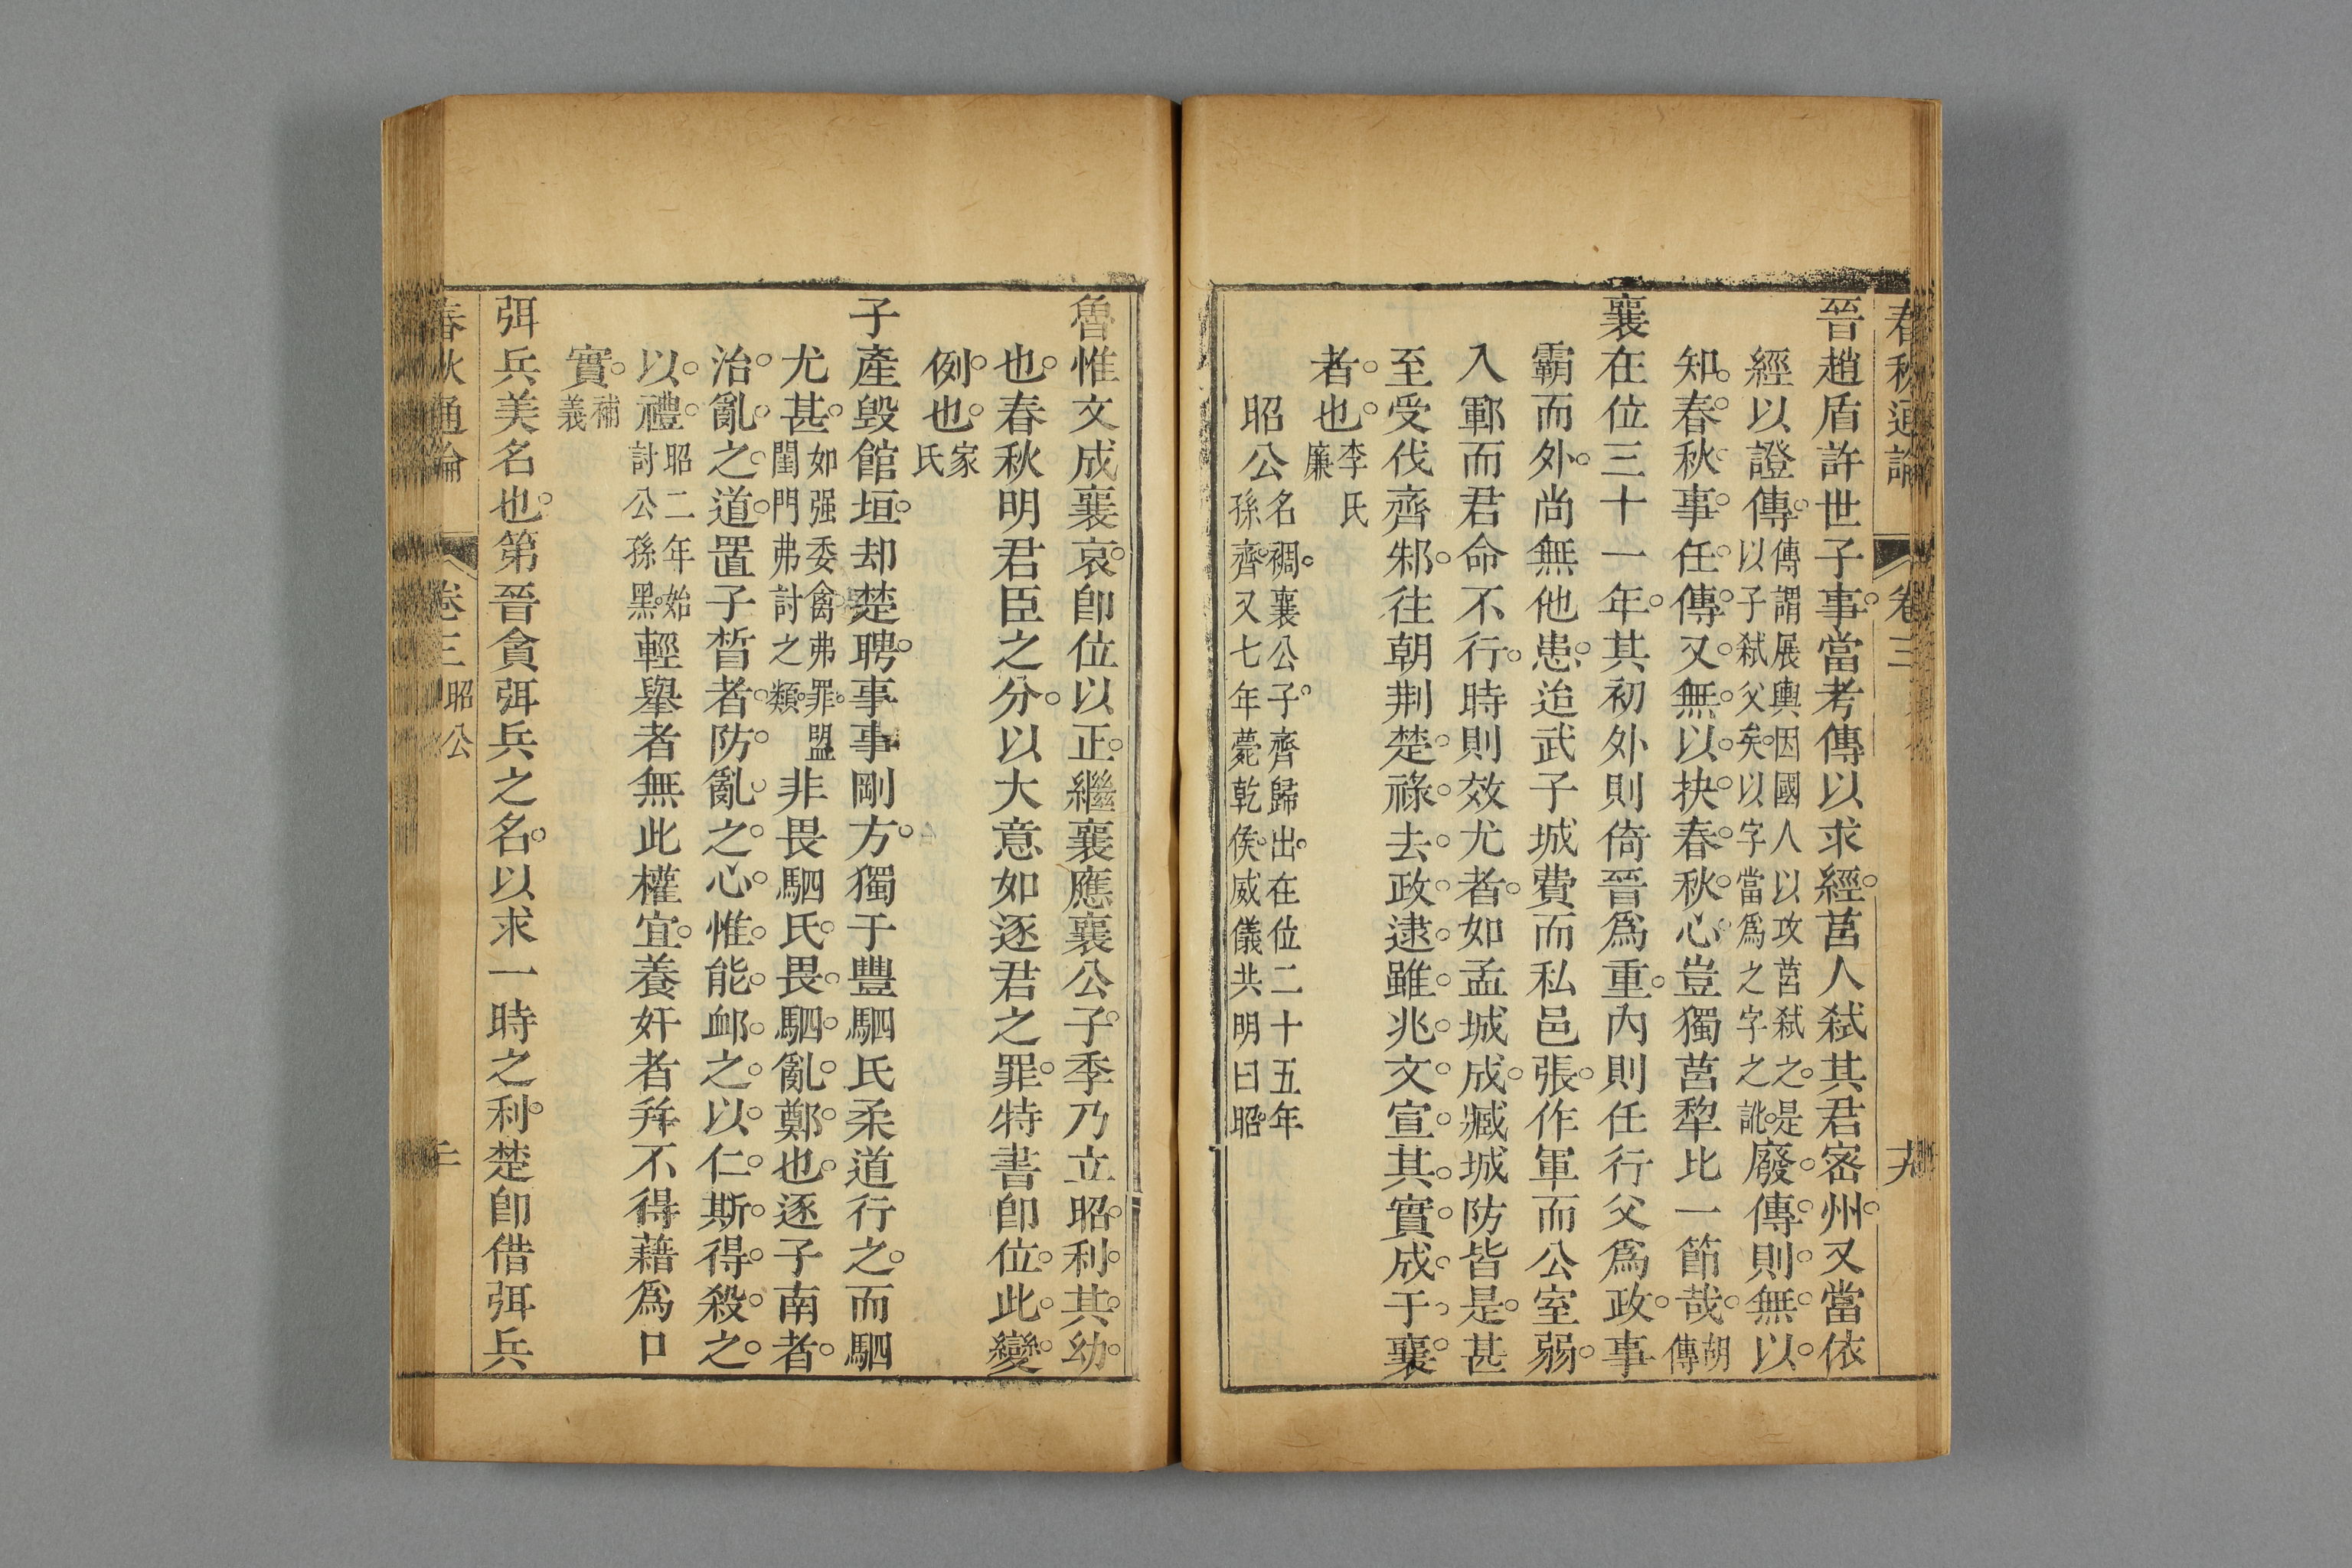 春秋通論 卷三 十九
晉趙盾許世子事。當考傳以求經。莒人弑其君密州。又當依
經以證傳。傳謂展輿因國人以攻莒弑之。是以子弑父矣。以字當爲之字之訛。廢傳則無以
知春秋事。任傳又無以抉春秋心。豈獨莒犂比一節哉。胡傳
襄在位三十一年。其初外則倚晉爲重。內則任行父爲政。事
霸而外。尚無他患。迨武子城費而私邑張。作軍而公室弱。
入鄆而君命不行。時則效尤者。如孟城成。臧城防皆是。甚
至受伐齊邾。往朝荆楚。祿去政逮。雖兆文宣。其實成于襄
者也。李氏廉
昭公 名裯。襄公子。齊歸出。在位二十五年孫齊。又七年薨乾侯。威儀共明曰昭。
魯惟文成襄哀。卽位以正。繼襄應襄公子。季乃立昭。利其幼
也。春秋明君臣之分。以大意如逐君之罪。特書卽位。此變
例也。家氏
子產毀館垣。却楚聘。事事剛方。獨于豐駟氏柔道行之。而駟
尤甚。如强委禽弗罪。盟閨門弗討之類。非畏駟氏。畏駟亂鄭也。逐子南者。
治亂之道。置子晳者。防亂之心。惟能衈之以仁。斯得殺之
以禮。昭二年始討公孫黑。輕舉者無此權宜。養奸者并不得藉爲口
實。補義
弭兵美名也。第晉貪弭兵之名。以求一時之利。楚卽借弭兵
春秋通論 卷三 昭公 二十